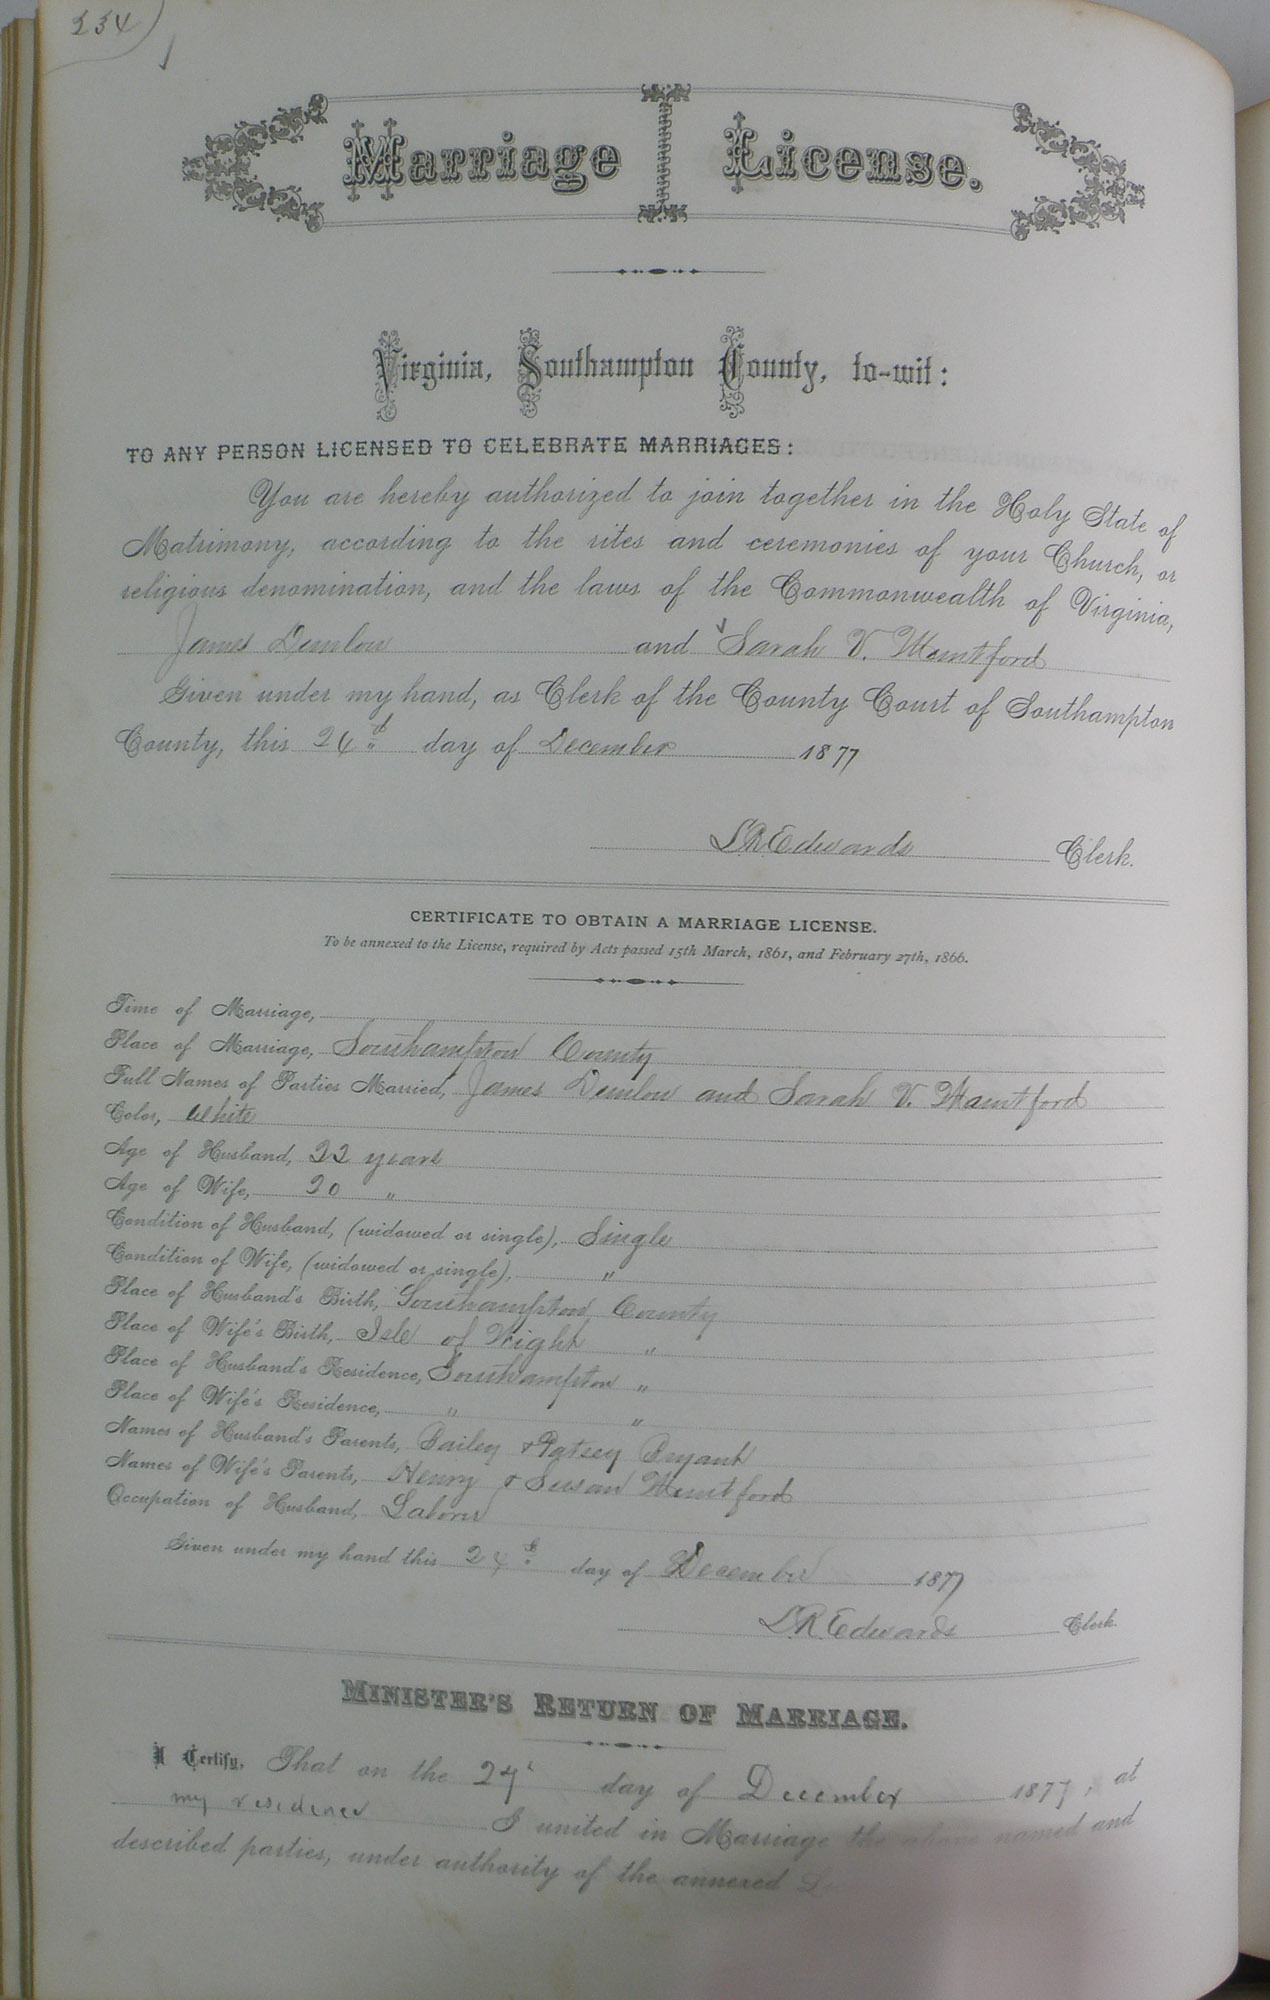 234
Marriage License.
Virginia, Southampton County, to-wit:
TO ANY PERSON LICENSED TO CELEBRATE MARRIAGES:
You are hereby authorized to join together in the Holy State of
Matrimony, according to the rites and ceremonies of your Church, or
religious denomination, and the laws of the Commonwealth of Virginia,
James Dunlow and Sarah V. Muntford
Given under my hand, as Clerk of the County Court of Southampton
County, this 24th day of December 1877
L R Edwards Clerk.
CERTIFICATE TO OBTAIN A MARRIAGE LICENSE.
To be annexed to the License, required by Acts passed 15th March, 1861, and February 27th, 1866.
Time of Marriage,
Place of Marriage, Southampton County
Full Names of Parties Married, James Dunlow and Sarah V. Muntford
Color, White
Age of Husband, 22 years
Age of Wife, 20 "
Condition of Husband, (widowed or single), Single
Condition of Wife, (widowed or single), "
Place of Husband's Birth, Southampton County
Place of Wife's Birth, Isle of Wight "
Place of Husband's Residence, Southampton "
Place of Wife's Residence, " "
Names of Husband's Parents, Bailey & Patsey Bryant
Names of Wife's Parents, Henry & Susan Muntford
Occupation of Husband, Laborer
Given under my hand this 24th day of December 1877
L R Edwards Clerk.
MINISTER'S RETURN OF MARRIAGE.
I Certify, That on the 27 day of December 1877, at
my residence I united in Marriage the above named and
described parties, under authority of the annexed